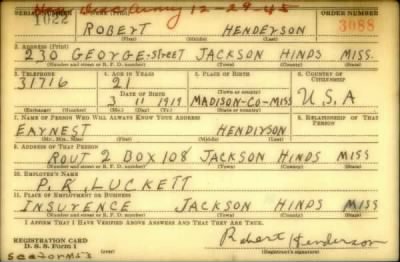 Army 12-29-45
SERIAL NUMBER 1022 ORDER NUMBER 3088
ROBERT HENDERSON
(First) (Last)
2. ADDRESS (Print)
230 GEORGE-street JACKSON HINDS MISS.
(Number and street or R. F. D. number) (Town) (County) (State)
3. TELEPHONE 4. AGE IN YEARS 5. PLACE OF BIRTH 6. COUNTRY OF CITIZENSHIP
31716 21 MADISON-CO-MISS U.S.A
DATE OF BIRTH
3 11 1919
(Exchange) (Number) (Mo.) (Day) (Yr.) (State or country)
7. NAME OF PERSON WHO WILL ALWAYS KNOW YOUR ADDRESS 8. RELATIONSHIP OF THAT PERSON
EARNEST HENDIRSON
(Mr., Mrs., Miss) (First) (Middle) (Last)
9. ADDRESS OF THAT PERSON
ROUT 2 BOX 108 JACKSON HINDS MISS
(Number and street or R. F. D. number) (Town) (County) (State)
10. EMPLOYER'S NAME
P. R. LUCKETT
11. PLACE OF EMPLOYMENT OR BUSINESS
INSURENCE JACKSON HINDS MISS
(Number and street or R. F. D. number) (Town) (County) (State)
I AFFIRM THAT I HAVE VERIFIED ABOVE ANSWERS AND THAT THEY ARE TRUE.
REGISTRATION CARD
D. S. S. Form 1
Robert Henderson
(Registrant's signature)